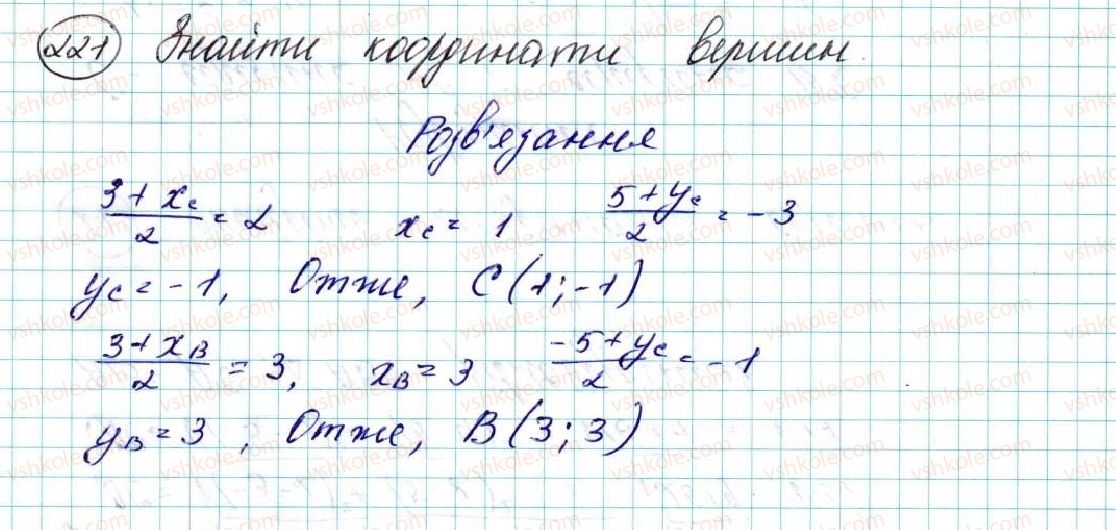 221 Знайти координати вершин.
Розв'язання
3 + x_c / 2 = 2 x_c = 1 5 + y_c / 2 = -3
y_c = -1, Отже, C(1; -1)
3 + x_B / 2 = 3, x_B = 3 -5 + y_c / 2 = -1
y_B = 3, Отже, B(3; 3)